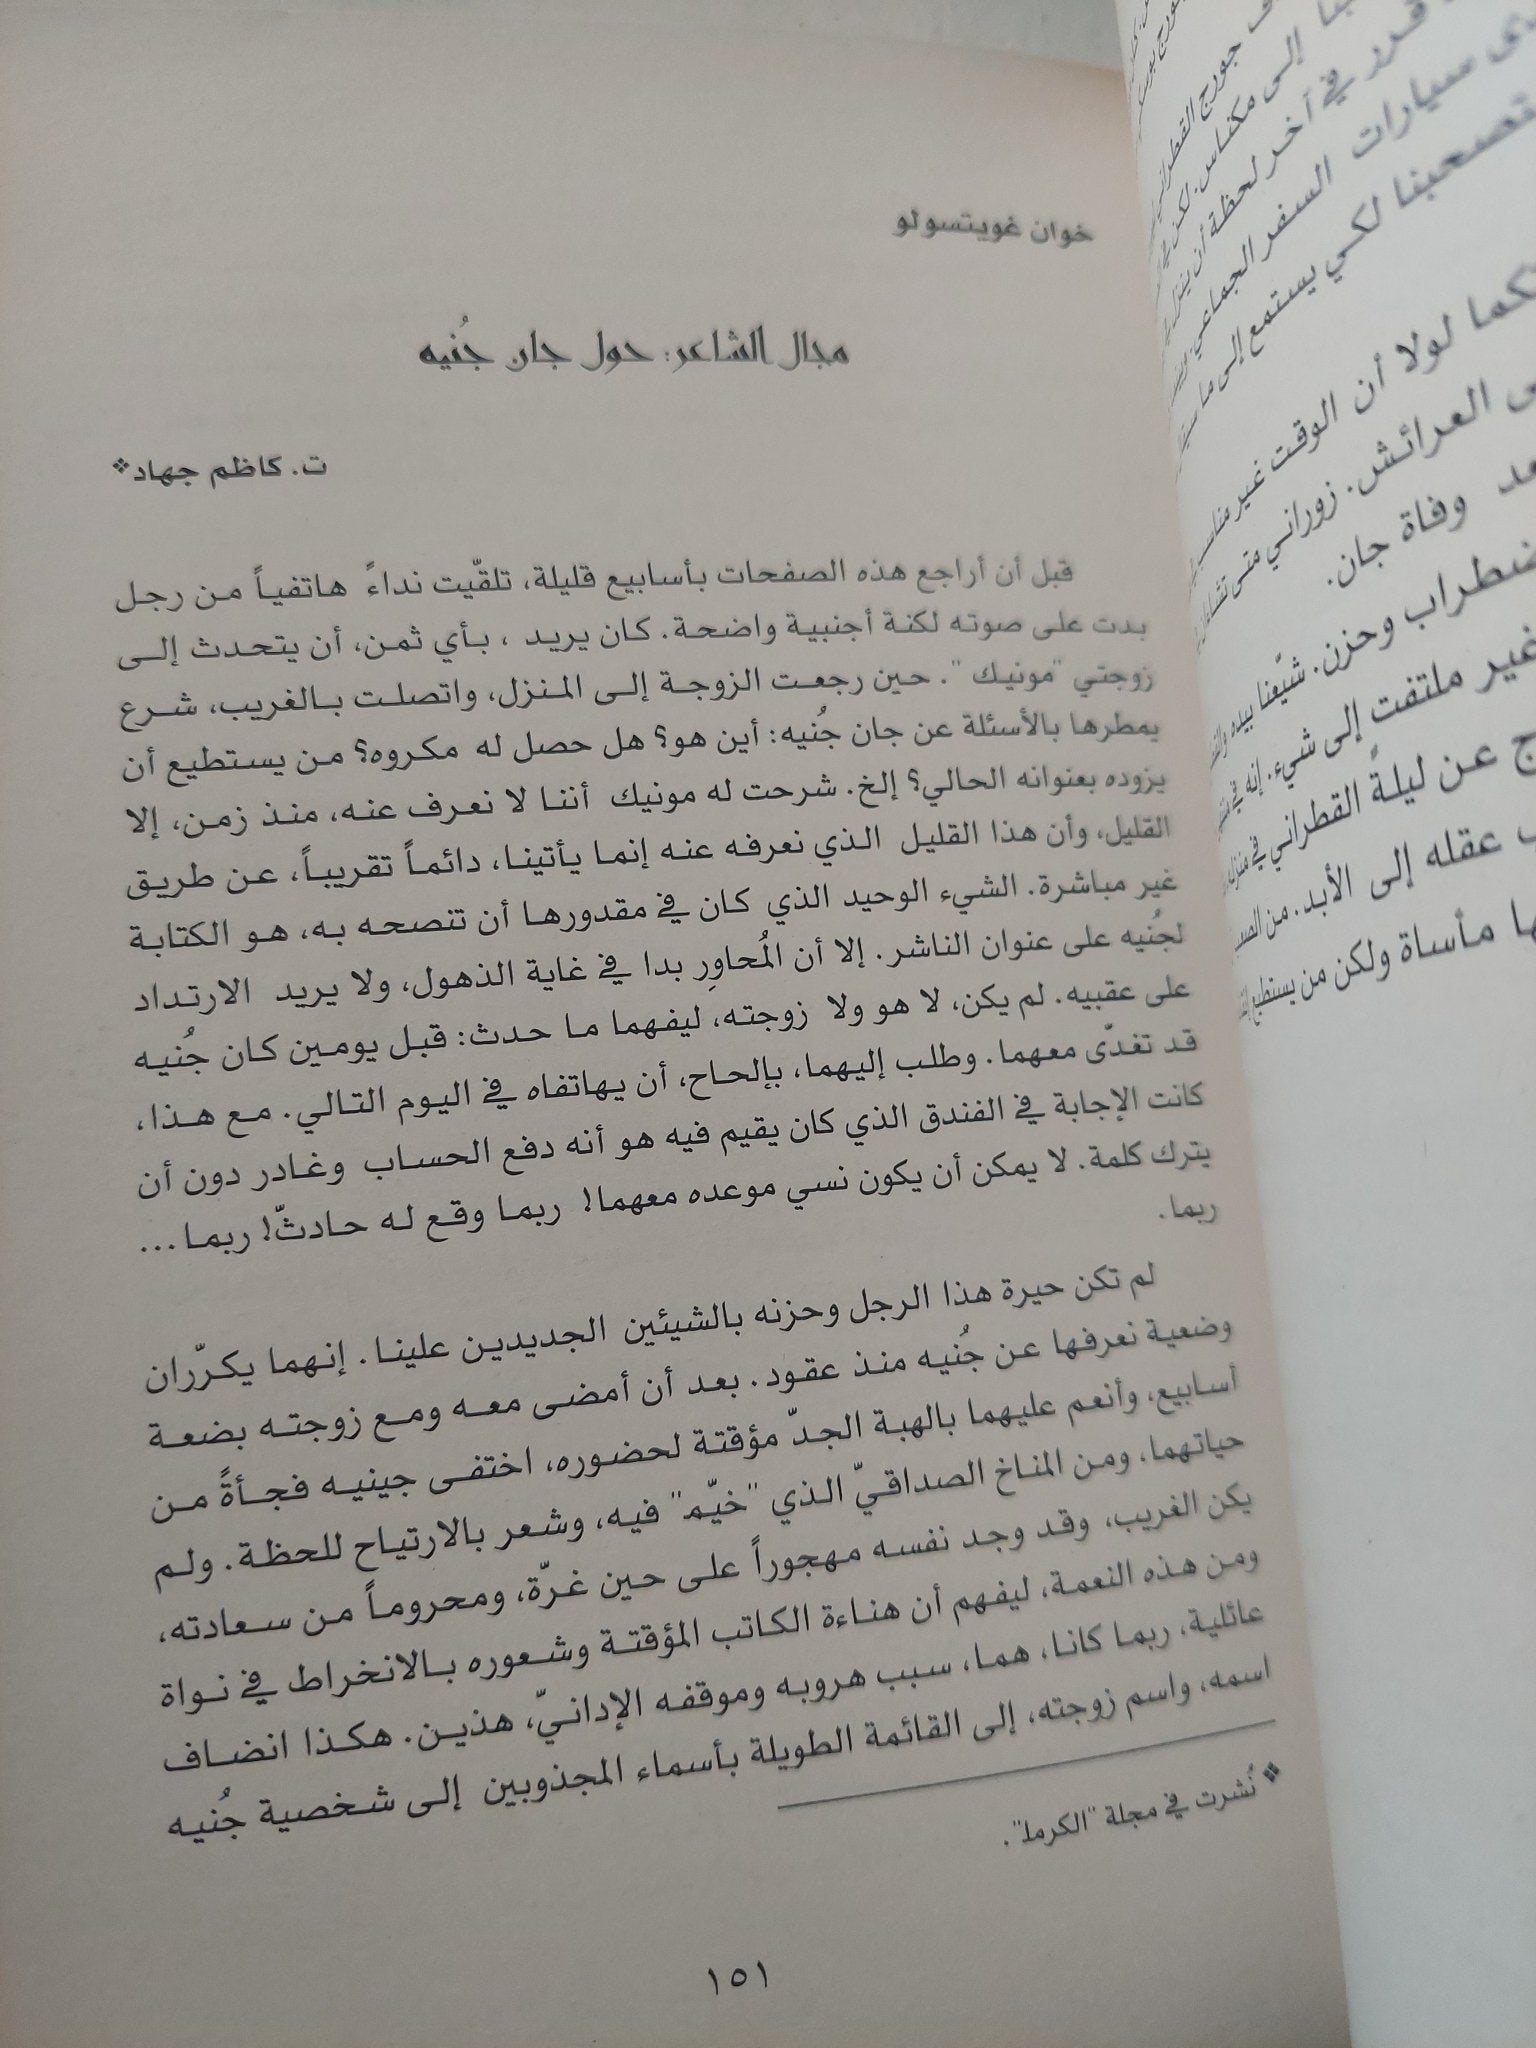 خوان غويتسولو
مجال الشاعر: حول جان جُنيه
ت. كاظم جهاد*
قبل أن أراجع هذه الصفحات بأسابيع قليلة، تلقّيت نداءً هاتفياً من رجل
بدت على صوته لكنة أجنبية واضحة. كان يريد ، بأي ثمن، أن يتحدث إلى
زوجتي "مونيك". حين رجعت الزوجة إلى المنزل، واتصلت بالغريب، شرع
يمطرها بالأسئلة عن جان جُنيه: أين هو؟ هل حصل له مكروه؟ من يستطيع أن
يزوده بعنوانه الحالي؟ إلخ. شرحت له مونيك أننا لا نعرف عنه، منذ زمن، إلا
القليل، وأن هذا القليل الذي نعرفه عنه إنما يأتينا، دائماً تقريباً، عن طريق
غير مباشرة. الشيء الوحيد الذي كان في مقدورها أن تنصحه به، هو الكتابة
لجُنيه على عنوان الناشر. إلا أن المُحاوِر بدا في غاية الذهول، ولا يريد الارتداد
على عقبيه. لم يكن، لا هو ولا زوجته، ليفهما ما حدث: قبل يومين كان جُنيه
قد تغدّى معهما. وطلب إليهما، بإلحاح، أن يهاتفاه في اليوم التالي. مع هذا،
كانت الإجابة في الفندق الذي كان يقيم فيه هو أنه دفع الحساب وغادر دون أن
يترك كلمة. لا يمكن أن يكون نسي موعده معهما! ربما وقع له حادثّ! ربما...
ربما.
لم تكن حيرة هذا الرجل وحزنه بالشيئين الجديدين علينا. إنهما يكرّران
وضعية نعرفها عن جُنيه منذ عقود. بعد أن أمضى معه ومع زوجته بضعة
أسابيع، وأنعم عليهما بالهبة الجدّ مؤقتة لحضوره، اختفى جينيه فجأةً من
حياتهما، ومن المناخ الصداقيّ الذي "خيّم" فيه، وشعر بالارتياح للحظة. ولم
يكن الغريب، وقد وجد نفسه مهجوراً على حين غرّة، ومحروماً من سعادته،
ومن هذه النعمة، ليفهم أن هناءة الكاتب المؤقتة وشعوره بالانخراط في نواة
عائلية، ربما كانا، هما، سبب هروبه وموقفه الإدانيّ، هذين. هكذا انضاف
اسمه، واسم زوجته، إلى القائمة الطويلة بأسماء المجذوبين إلى شخصية جُنيه
* نُشرت في مجلة "الكرمل".
١٥١
جورج القطراني
إلى مكناس. لكن
قرر في آخر لحظة أن ينزل
سيارات السفر الجماعي.
تصحبنا لكي يستمع إلى ما
لولا أن الوقت غير
العرائش. زوراني متى
وفاة جان.
وحزن. شيّعنا بيده
غير ملتفت إلى شيء. إنه في
عن ليلة القطراني في
عقله إلى الأبد. من
مأساة ولكن من يستطيع